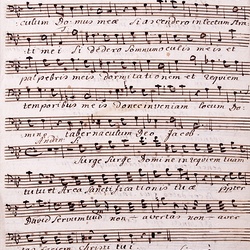 culum Domus meæ Si ascendero in lectum stra
ti mei Si dedero somnum oculis meis et
palpebris meis dormitationem et requiem
temporibus meis donec inveniam locum Do
mino tabernaculum Deo Jacob.
Surge Surge Domine in requiem tuam
tu et Arca Sanctificationis tuæ propter
David servum tuum non avertas non aver
tas faciem Christi tui